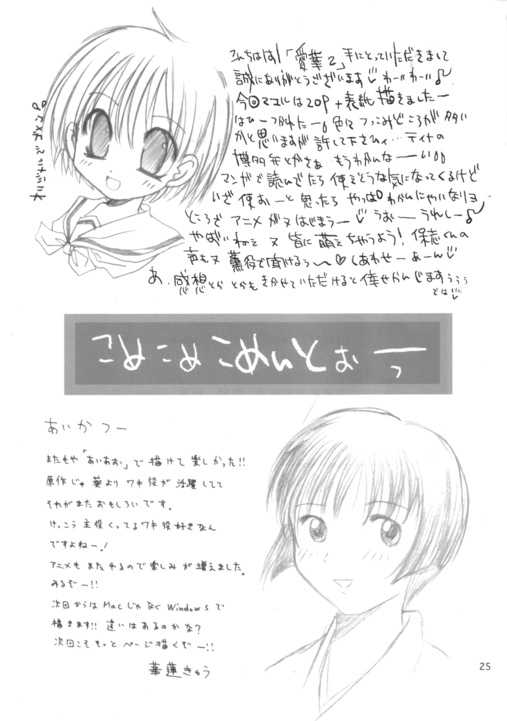 こんちはは!「愛華2」手にとっていただきまして
誠にありがとうございます わーいわーい♪
今回マコルは20P+表紙描きましたー
はひーつかれたー。色々つっこみどころが多い
かと思いますが許して下さい…ティナの
博多弁とかさぁ もうわかんなーーい
マンガで読んでたら使えそうな気になってくるけど
いざ使おーと思ったら やっぱわかんにゃいなりョ
ところで アニメが又はじまるー うおーうれしー♪
やばいわねぇ 又 皆に萌えちゃうよう! 保志くんの
声も又 薫役で聞けるぅ〜♡しあわせーあーん
あ、感想とか とかもきかせていただけると倖せかんじますぅぅぅ
では
こめ こめ こめいとぉーっ
あいかつー
またもや「あいあお」で描けて楽しかった!!
原作じゃ葵よりワキ役が活躍してて
それがまたおもしろいです。
けっこう主役くってるワキ役好きなん
ですよねー!
アニメもまたやるので楽しみが増えました。
みるぞー!!
次回からはMacじゃなくWindowsで
描きます!! 違いはあるのかな?
次回こそもっとページ描くぞー!!
華蓮きゅう
25